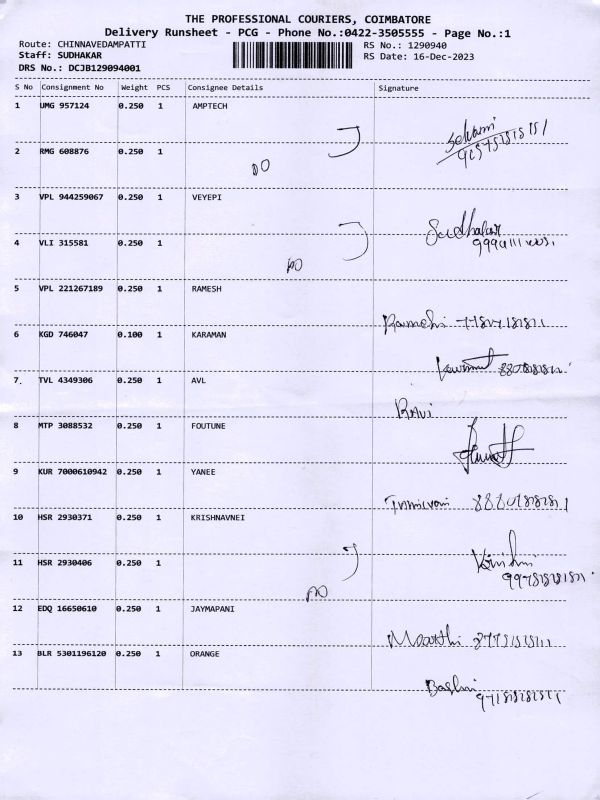 THE PROFESSIONAL COURIERS, COIMBATORE
Delivery Runsheet - PCG - Phone No.:0422-3505555 - Page No.:1
Route: CHINNAVEDAMPATTI RS No.: 1290940
Staff: SUDHAKAR RS Date: 16-Dec-2023
DRS No.: DCJB129094001
S No Consignment No Weight PCS Consignee Details Signature
1 UMG 957124 0.250 1 AMPTECH
Selvami
2 RMG 608876 0.250 1
DO
3 VPL 944259067 0.250 1 VEYEPI
Sudhakar
4 VLI 315581 0.250 1
DO
5 VPL 221267189 0.250 1 RAMESH
Ramesh
6 KGD 746047 0.100 1 KARAMAN
7. TVL 4349306 0.250 1 AVL
Ravi
8 MTP 3088532 0.250 1 FOUTUNE
9 KUR 7000610942 0.250 1 YANEE
10 HSR 2930371 0.250 1 KRISHNAVNEI
11 HSR 2930406 0.250 1
DO
12 EDQ 16650610 0.250 1 JAYMAPANI
Moorthi
13 BLR 5301196120 0.250 1 ORANGE